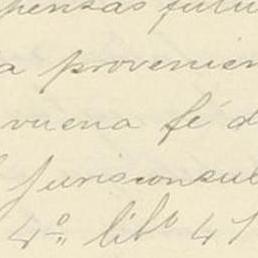 pensas futu
a provenien
vuena fé d
jurisconsul
4º libº 4